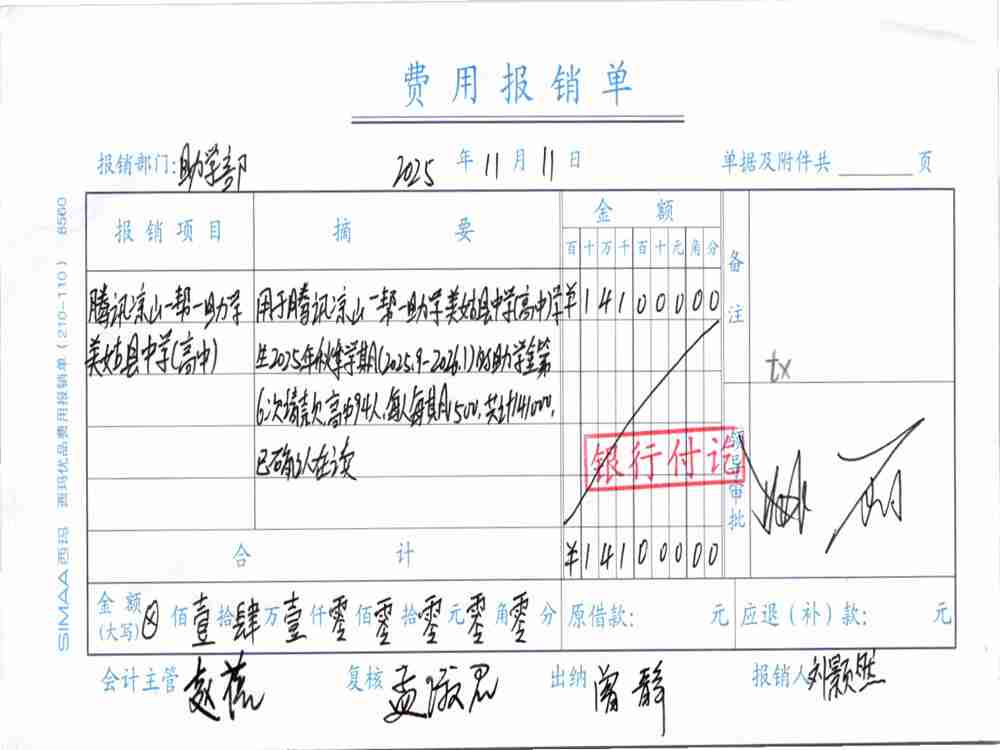 费用报销单
报销部门:助学部 2025年11月11日 单据及附件共 页
报销项目 摘要 金额 备注
百十万千百十元角分
腾讯凉山一帮一助学 用于腾讯凉山一帮一助学美姑县中学(高中)学 ¥14100000
美姑县中学(高中) 生2025年秋季学期(2025.9-2026.1)的助学金第
6次请款,高中94人,每人每期1500,共计141000,
已确认在读
tx
银行付讫
领导审批
合计 ¥14100000
金额(大写)⊗佰壹拾肆万壹仟零佰零拾零元零角零分 原借款: 元 应退(补)款: 元
会计主管 赵蓓 复核 孟淑君 出纳 曾静 报销人 刘颢然
SIMAA 西玛 西玛优品费用报销单(210-110) 8560